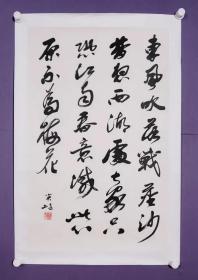 東風吹落戰塵沙
夢想西湖處士家只
恐江南春意減此心
原不為梅花